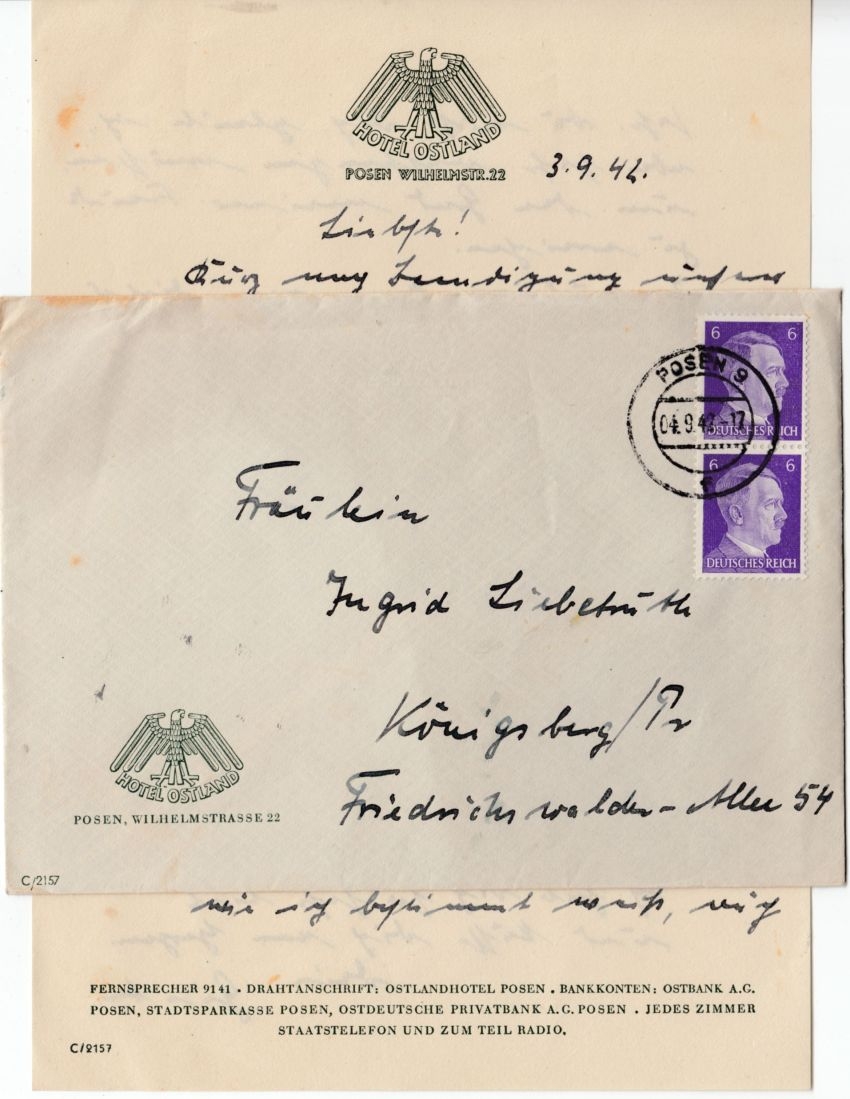 HOTEL OSTLAND
POSEN WILHELMSTR.22
3.9.42.
Liebste!
Kurz nach Beendigung unseres
6 6
POSEN 9
04.9.42-17
DEUTSCHES REICH
6 6
DEUTSCHES REICH
Fräulein
Ingrid Liebetruth
Königsberg/Pr
Friedrichswalder-Allee 54
HOTEL OSTLAND
POSEN, WILHELMSTRASSE 22
C/2157
wie ich bestimmt weiß, auch
FERNSPRECHER 9141 · DRAHTANSCHRIFT: OSTLANDHOTEL POSEN · BANKKONTEN: OSTBANK A.G.
POSEN, STADTSPARKASSE POSEN, OSTDEUTSCHE PRIVATBANK A.G. POSEN · JEDES ZIMMER
STAATSTELEFON UND ZUM TEIL RADIO.
C/2157